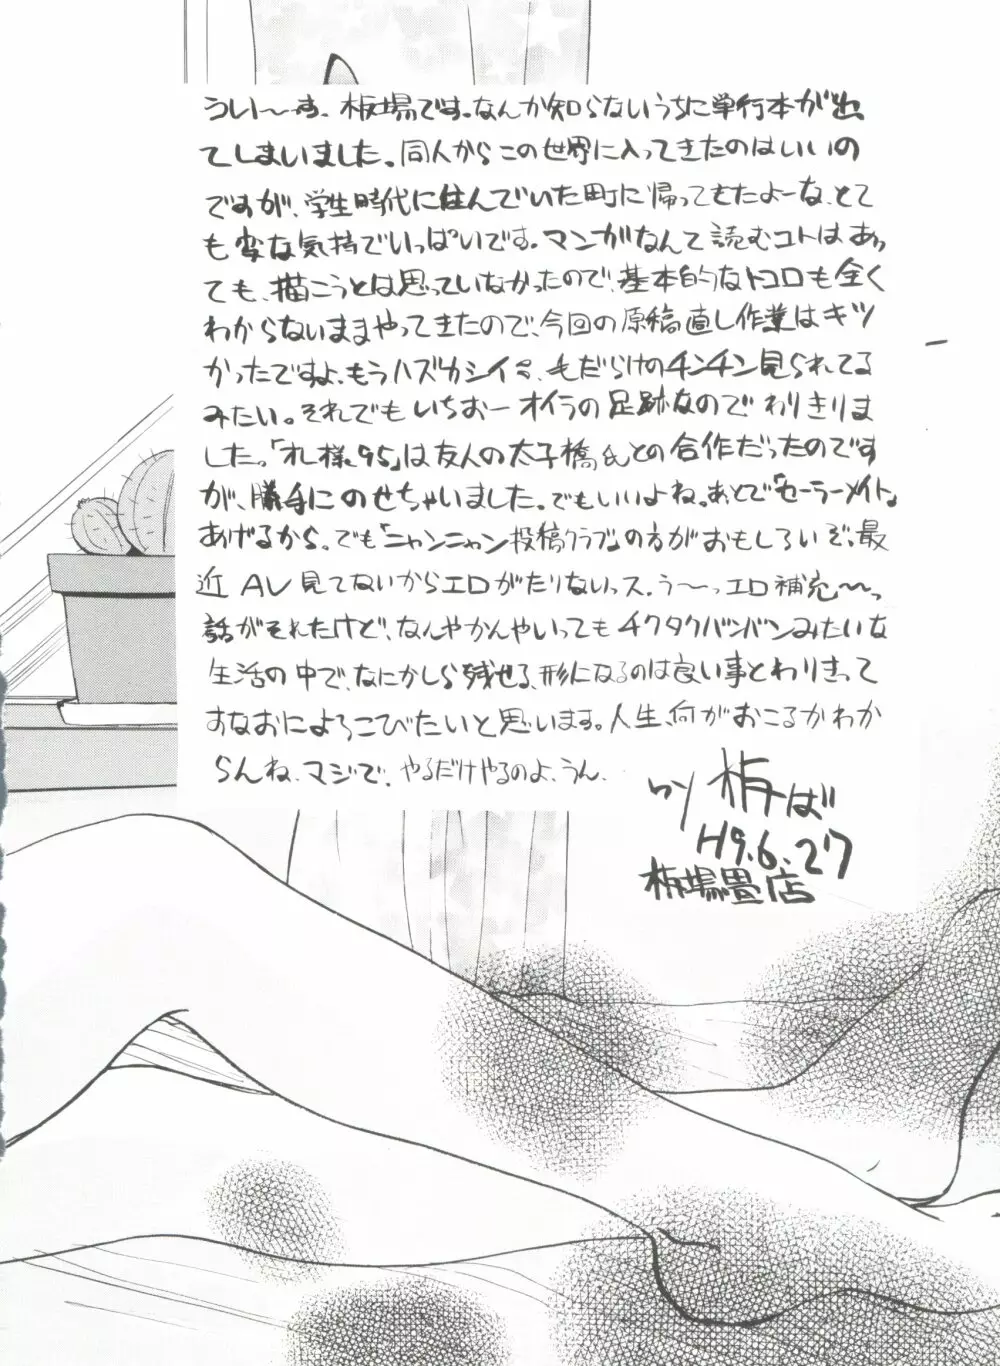 うい〜す、板場です。なんか知らないうちに単行本が出
てしまいました。同人からこの世界に入ってきたのはいいの
ですが、学生時代に住んでいた町に帰ってきたよーな、とて
も変な気持でいっぱいです。マンガなんて読むコトはあっ
ても、描こうとは思っていなかったので、基本的なトコロも全く
わからないままやってきたので、今回の原稿直し作業はキツ
かったですよ、もうハズカシイミ、毛だらけのチンチン見られてる
みたい。それでもいちおーオイラの足跡なのでわりきりま
した。「オレ様95」は友人の太子橋氏との合作だったのです
が、勝手にのせちゃいました。でもいいよね。あとで「セーラーメイト」
あげるから。でも「ニャンニャン投稿クラブ」の方がおもしろいぞ。最
近AV見てないからエロがたりないっス。う〜っエロ補充〜っ
話がそれたけど、なんやかんやいってもチクタクバンバンみたいな
生活の中で、なにかしら残せる、形になるのは良い事とわりきって
すなおによろこびたいと思います。人生、何がおこるかわか
らんね、マジで、やるだけやるのよ、うん。
いつ 板ば
H9.6.27
板場畳店